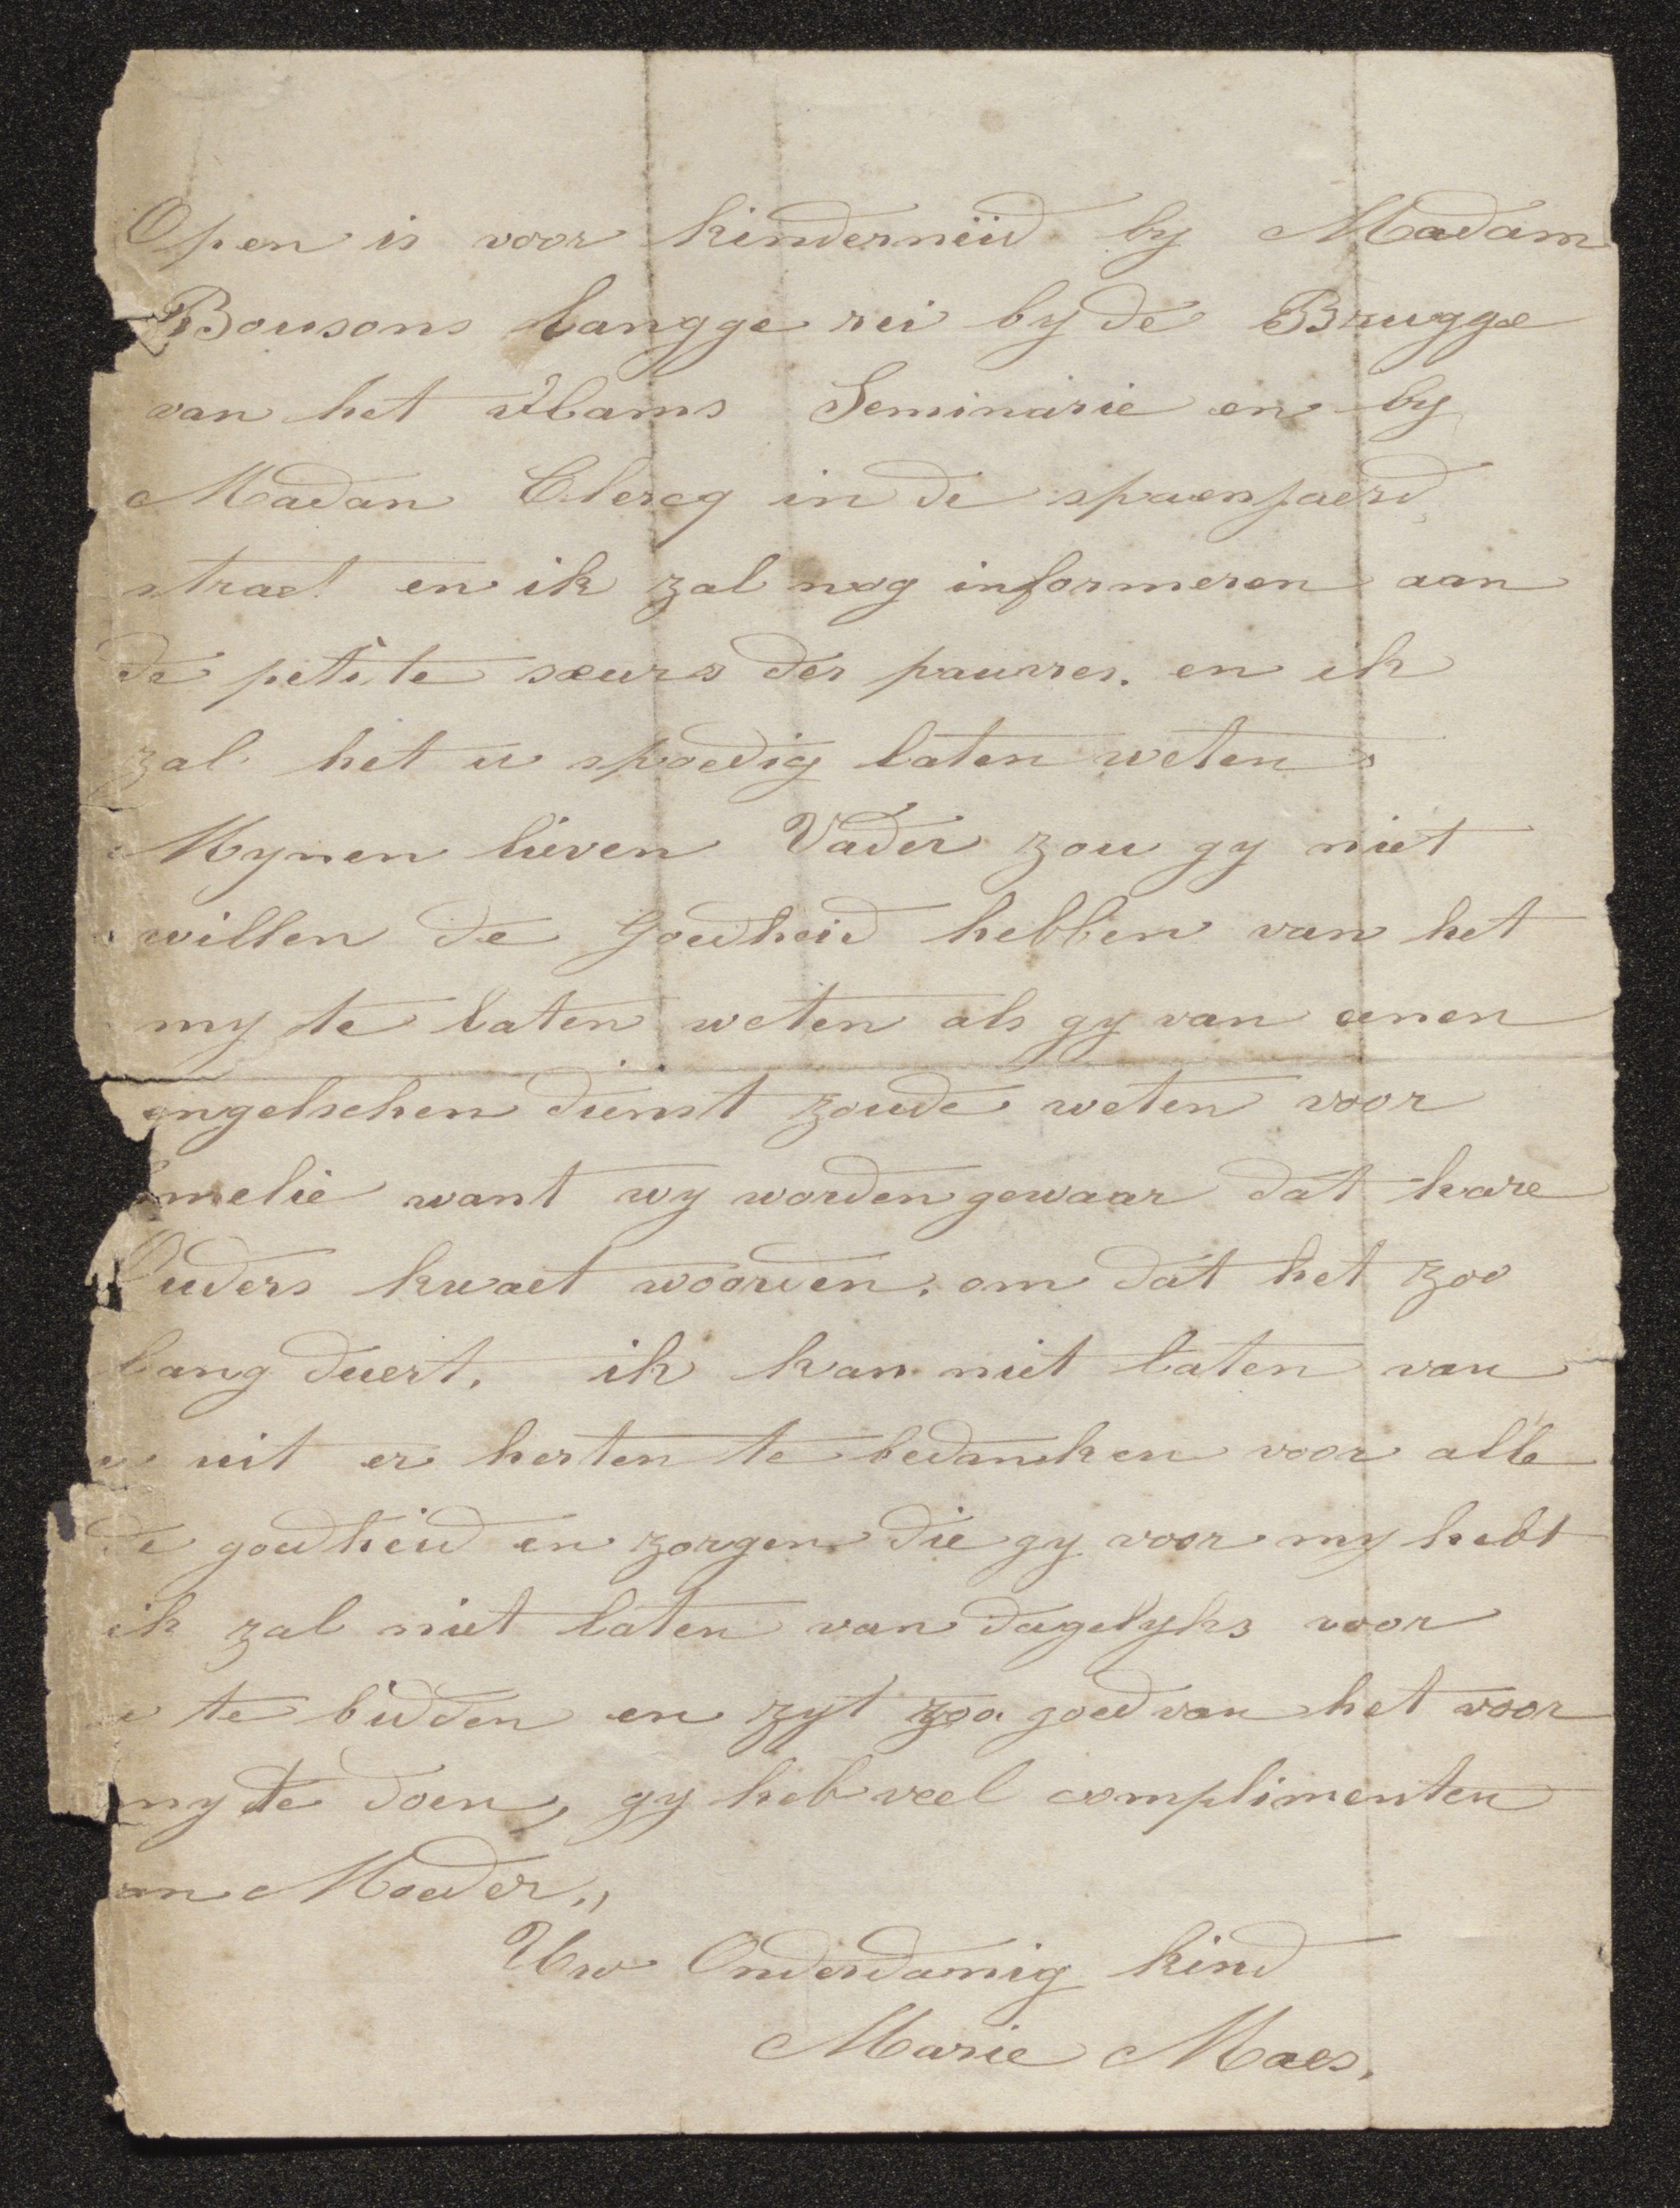 Open is voor kindermeid by Madam
Bousons Langge rei by de Brugge
van het vlams Seminarie en by
Madan Clercq in de spaenjaerd
straet en ik zal nog informeren aan
de petite sœurs des pauvres. en ik
zal het u spoedig laten weten
Mynen lieven Vader zou gy niet
willen de Goedheid hebben van het
my te laten weten als gy van eenen
engelschen dienst zoude weten voor
melie want wy worden gewaar dat hare
Ouders kwaet woorden. om dat het zoo
lang duert. ik kan niet laten van
u uit er herten te bedanken voor alle
de goedheid en zorgen die gy voor my hebt
ik zal niet laten van dagelyks voor
u te bidden en zyt zoo goed van het voor
my te doen, gy heb veel complimenten
van Moeder.,
Uw Onderdamig kind
Marie Maes.